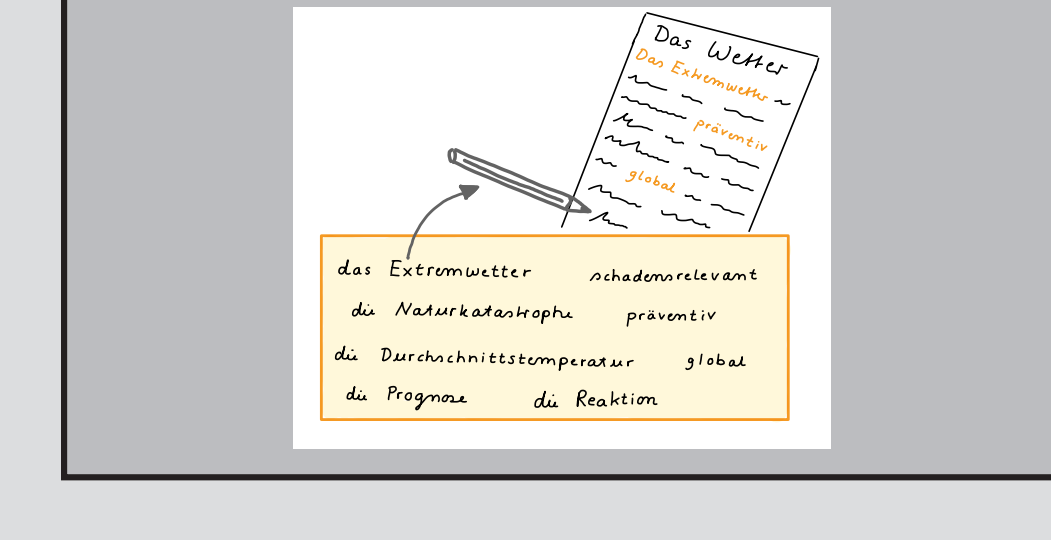 Das Wetter
Das Extremwetter
präventiv
global
das Extremwetter schadensrelevant
die Naturkatastrophe präventiv
die Durchschnittstemperatur global
die Prognose die Reaktion